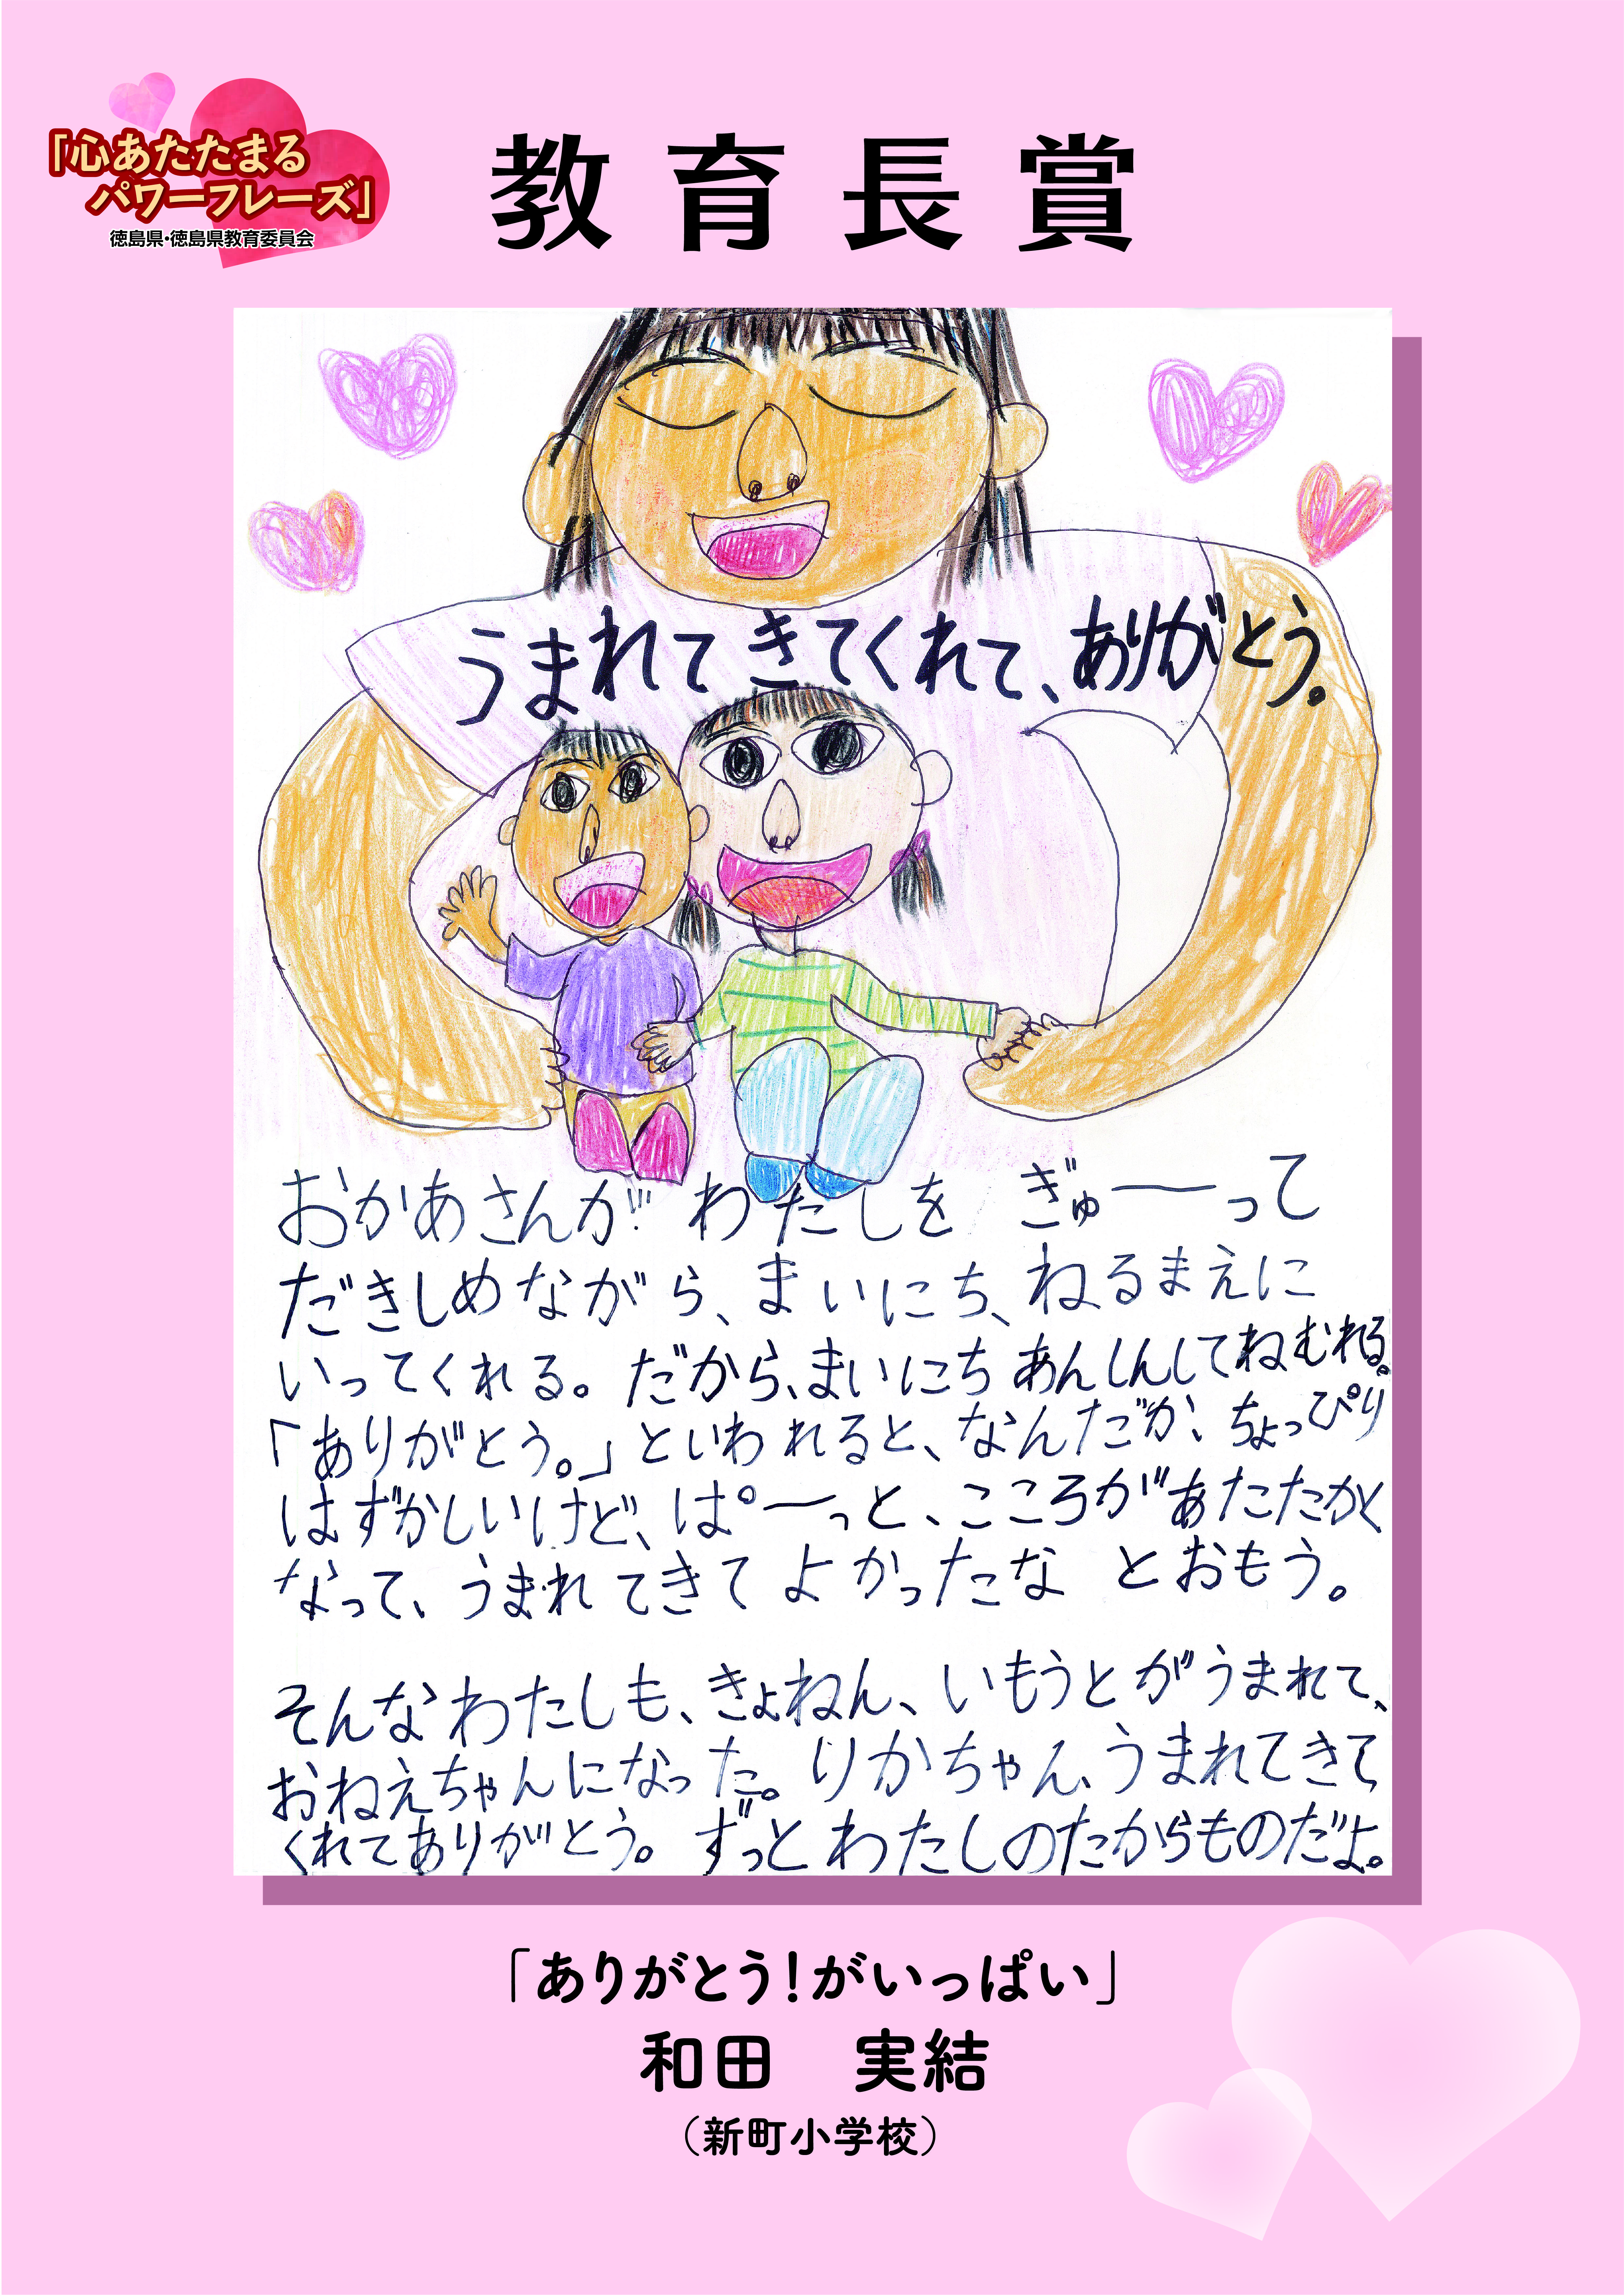 「心あたたまる
パワーフレーズ」
徳島県・徳島県教育委員会
教育長賞
うまれてきてくれて、ありがとう。
おかあさんが わたしを ぎゅーって
だきしめながら、まいにち、ねるまえに
いってくれる。だから、まいにち あんしんしてねむれる。
「ありがとう。」といわれると、なんだか、ちょっぴり
はずかしいけど、ぱーっと、こころがあたたかく
なって、うまれてきて よかったな とおもう。
そんなわたしも、きょねん、いもうとがうまれて、
おねえちゃんになった。りかちゃん、うまれてきて
くれてありがとう。ずっとわたしのたからものだよ。
「ありがとう!がいっぱい」
和田 実結
(新町小学校)